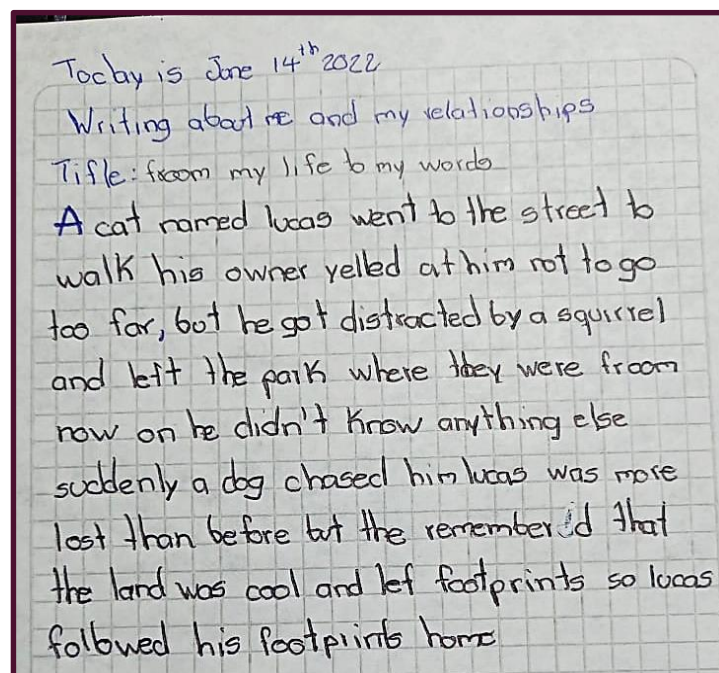 Today is June 14th 2022
Writing about me and my relationships
Title: froom my life to my words
A cat named lucas went to the street to
walk his owner yelled at him not to go
too far, but he got distracted by a squirrel
and left the park where they were froom
now on he didn't know anything else
suddenly a dog chased him lucas was more
lost than before but the rememberid that
the land was cool and lef footprints so lucas
followed his footprints home